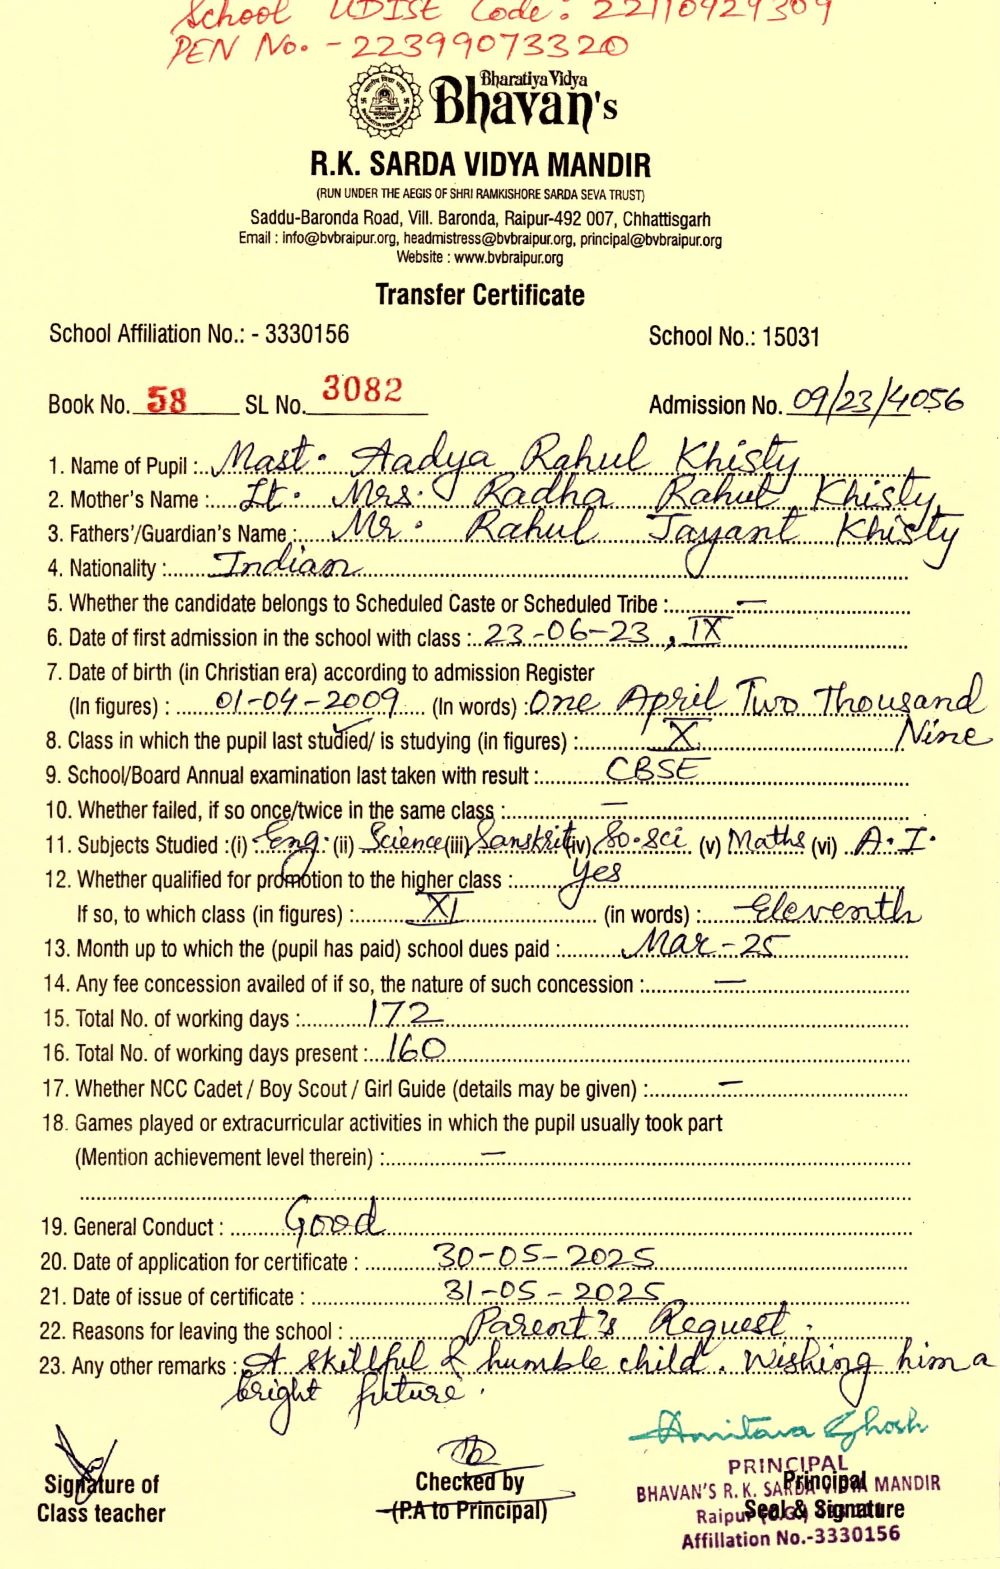 School UDISE Code: 22110929309
PEN No. - 22399073320
Bharatiya Vidya
Bhavan's
R.K. SARDA VIDYA MANDIR
(RUN UNDER THE AEGIS OF SHRI RAMKISHORE SARDA SEVA TRUST)
Saddu-Baronda Road, Vill. Baronda, Raipur-492 007, Chhattisgarh
Email : info@bvbraipur.org, headmistress@bvbraipur.org, principal@bvbraipur.org
Website : www.bvbraipur.org
Transfer Certificate
School Affiliation No.: - 3330156 School No.: 15031
Book No. 58 SL No. 3082 Admission No. 09/23/4056
1. Name of Pupil : Mast. Aadya Rahul Khisty
2. Mother's Name : Lt. Mrs. Radha Rahul Khisty
3. Fathers'/Guardian's Name : Mr. Rahul Jayant Khisty
4. Nationality : Indian
5. Whether the candidate belongs to Scheduled Caste or Scheduled Tribe : —
6. Date of first admission in the school with class : 23-06-23, IX
7. Date of birth (in Christian era) according to admission Register
(In figures) : 01-04-2009 (In words) : One April Two Thousand
Nine
8. Class in which the pupil last studied/ is studying (in figures) : X
9. School/Board Annual examination last taken with result : CBSE
10. Whether failed, if so once/twice in the same class : —
11. Subjects Studied :(i) Eng. (ii) Science (iii) Sanskrit (iv) So.Sci (v) Maths (vi) A.I.
12. Whether qualified for promotion to the higher class : Yes
If so, to which class (in figures) : XI (in words) : Eleventh
13. Month up to which the (pupil has paid) school dues paid : Mar-25
14. Any fee concession availed of if so, the nature of such concession : —
15. Total No. of working days : 172
16. Total No. of working days present : 160
17. Whether NCC Cadet / Boy Scout / Girl Guide (details may be given) : —
18. Games played or extracurricular activities in which the pupil usually took part
(Mention achievement level therein) : —
19. General Conduct : Good
20. Date of application for certificate : 30-05-2025
21. Date of issue of certificate : 31-05-2025
22. Reasons for leaving the school : Parent's Request.
23. Any other remarks : A skillful & humble child. Wishing him a
bright future.
Amitava Ghosh
PRINCIPAL
Signature of Checked by Principal
BHAVAN'S R. K. SARDA VIDYA MANDIR
Class teacher (P.A to Principal) Seal & Signature
Raipur (C.G.)
Affiliation No.-3330156